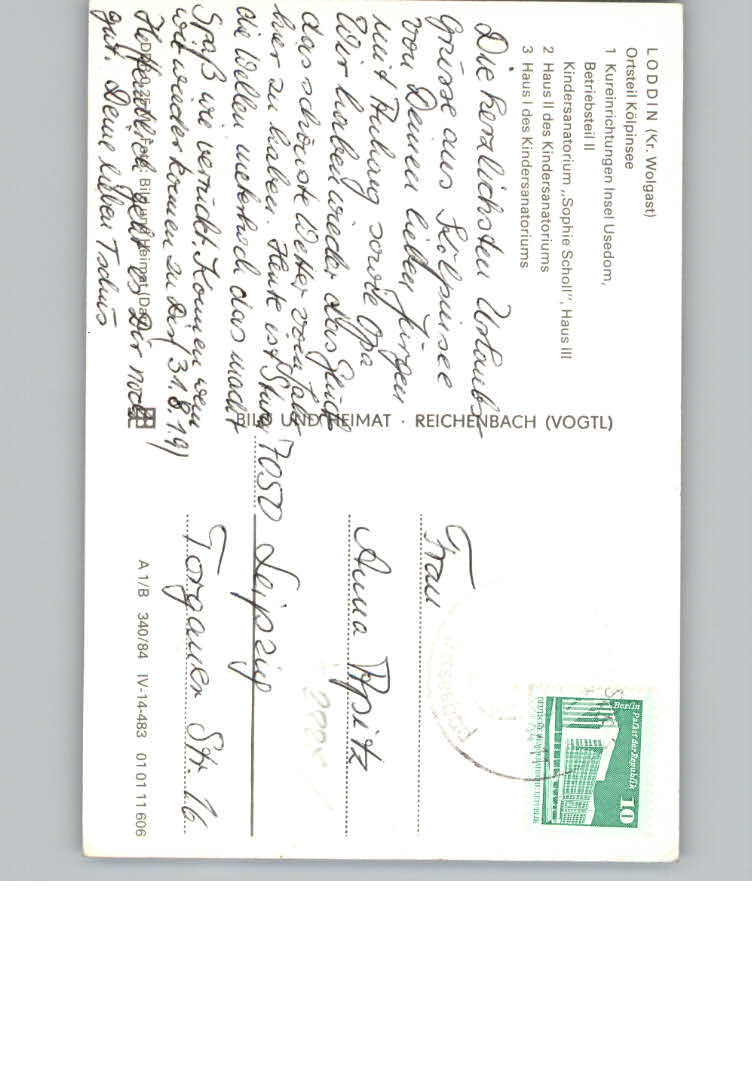 LODDIN (Kr. Wolgast)
Ortsteil Kölpinsee
1 Kureinrichtungen Insel Usedom,
Betriebsteil II
Kindersanatorium „Sophie Scholl", Haus III
2 Haus II des Kindersanatoriums
3 Haus I des Kindersanatoriums
Die herzlichsten Urlaubs
grüsse aus Kölpinsee
von Deinen lieben Jürgen
mit Anhang sowie Opa
Wir haben wieder das Glück
das schönste Wetter vom Jahr
hier zu haben. Heute ist Sturm
die Wellen meterhoch das macht
Spaß wie verrückt. Kommen wenn
wir wieder kommen zu Dir (31.8.19)
Hoffentlich geht es Dir noch
gut. Deine lieben
Foto: Bild und Heimat
BILD UND HEIMAT · REICHENBACH (VOGTL)
Frau
Anna Apitz
7050 Leipzig
Torgauer Str. 16
A 1/B 340/84 IV-14-483 01 01 11 606
Berlin Palast der Republik
10
DEUTSCHE DEMOKRATISCHE REPUBLIK